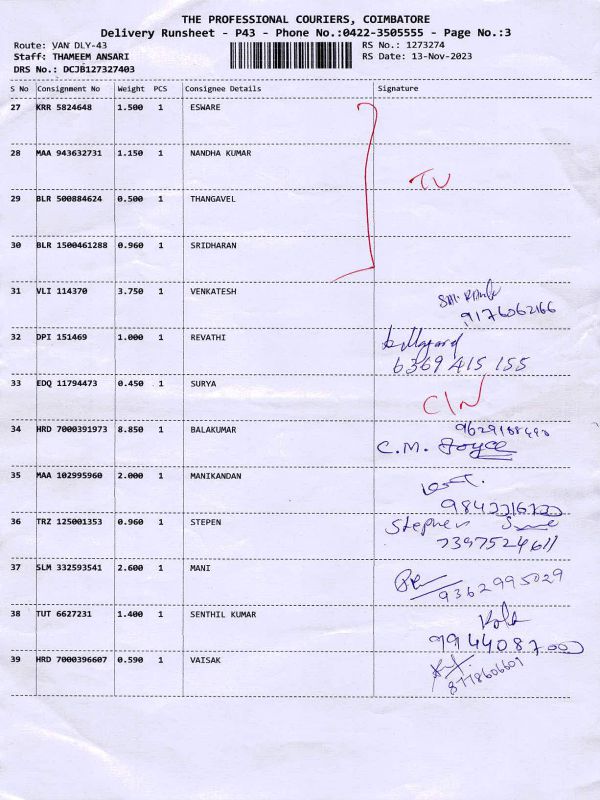 THE PROFESSIONAL COURIERS, COIMBATORE
Delivery Runsheet - P43 - Phone No.:0422-3505555 - Page No.:3
Route: VAN DLY-43 RS No.: 1273274
Staff: THAMEEM ANSARI RS Date: 13-Nov-2023
DRS No.: DCJB127327403
S No Consignment No Weight PCS Consignee Details Signature
27 KRR 5824648 1.500 1 ESWARE
28 MAA 943632731 1.150 1 NANDHA KUMAR
29 BLR 500884624 0.500 1 THANGAVEL
30 BLR 1500461288 0.960 1 SRIDHARAN
31 VLI 114370 3.750 1 VENKATESH
9176062166
32 DPI 151469 1.000 1 REVATHI
6369 415 155
33 EDQ 11794473 0.450 1 SURYA
C/N
34 HRD 7000391973 8.850 1 BALAKUMAR
C.M. Joyce
35 MAA 102995960 2.000 1 MANIKANDAN
36 TRZ 125001353 0.960 1 STEPEN
Stephen
7397524611
37 SLM 332593541 2.600 1 MANI
9362995029
38 TUT 6627231 1.400 1 SENTHIL KUMAR
Kala
9944087700
39 HRD 7000396607 0.590 1 VAISAK
8778606601